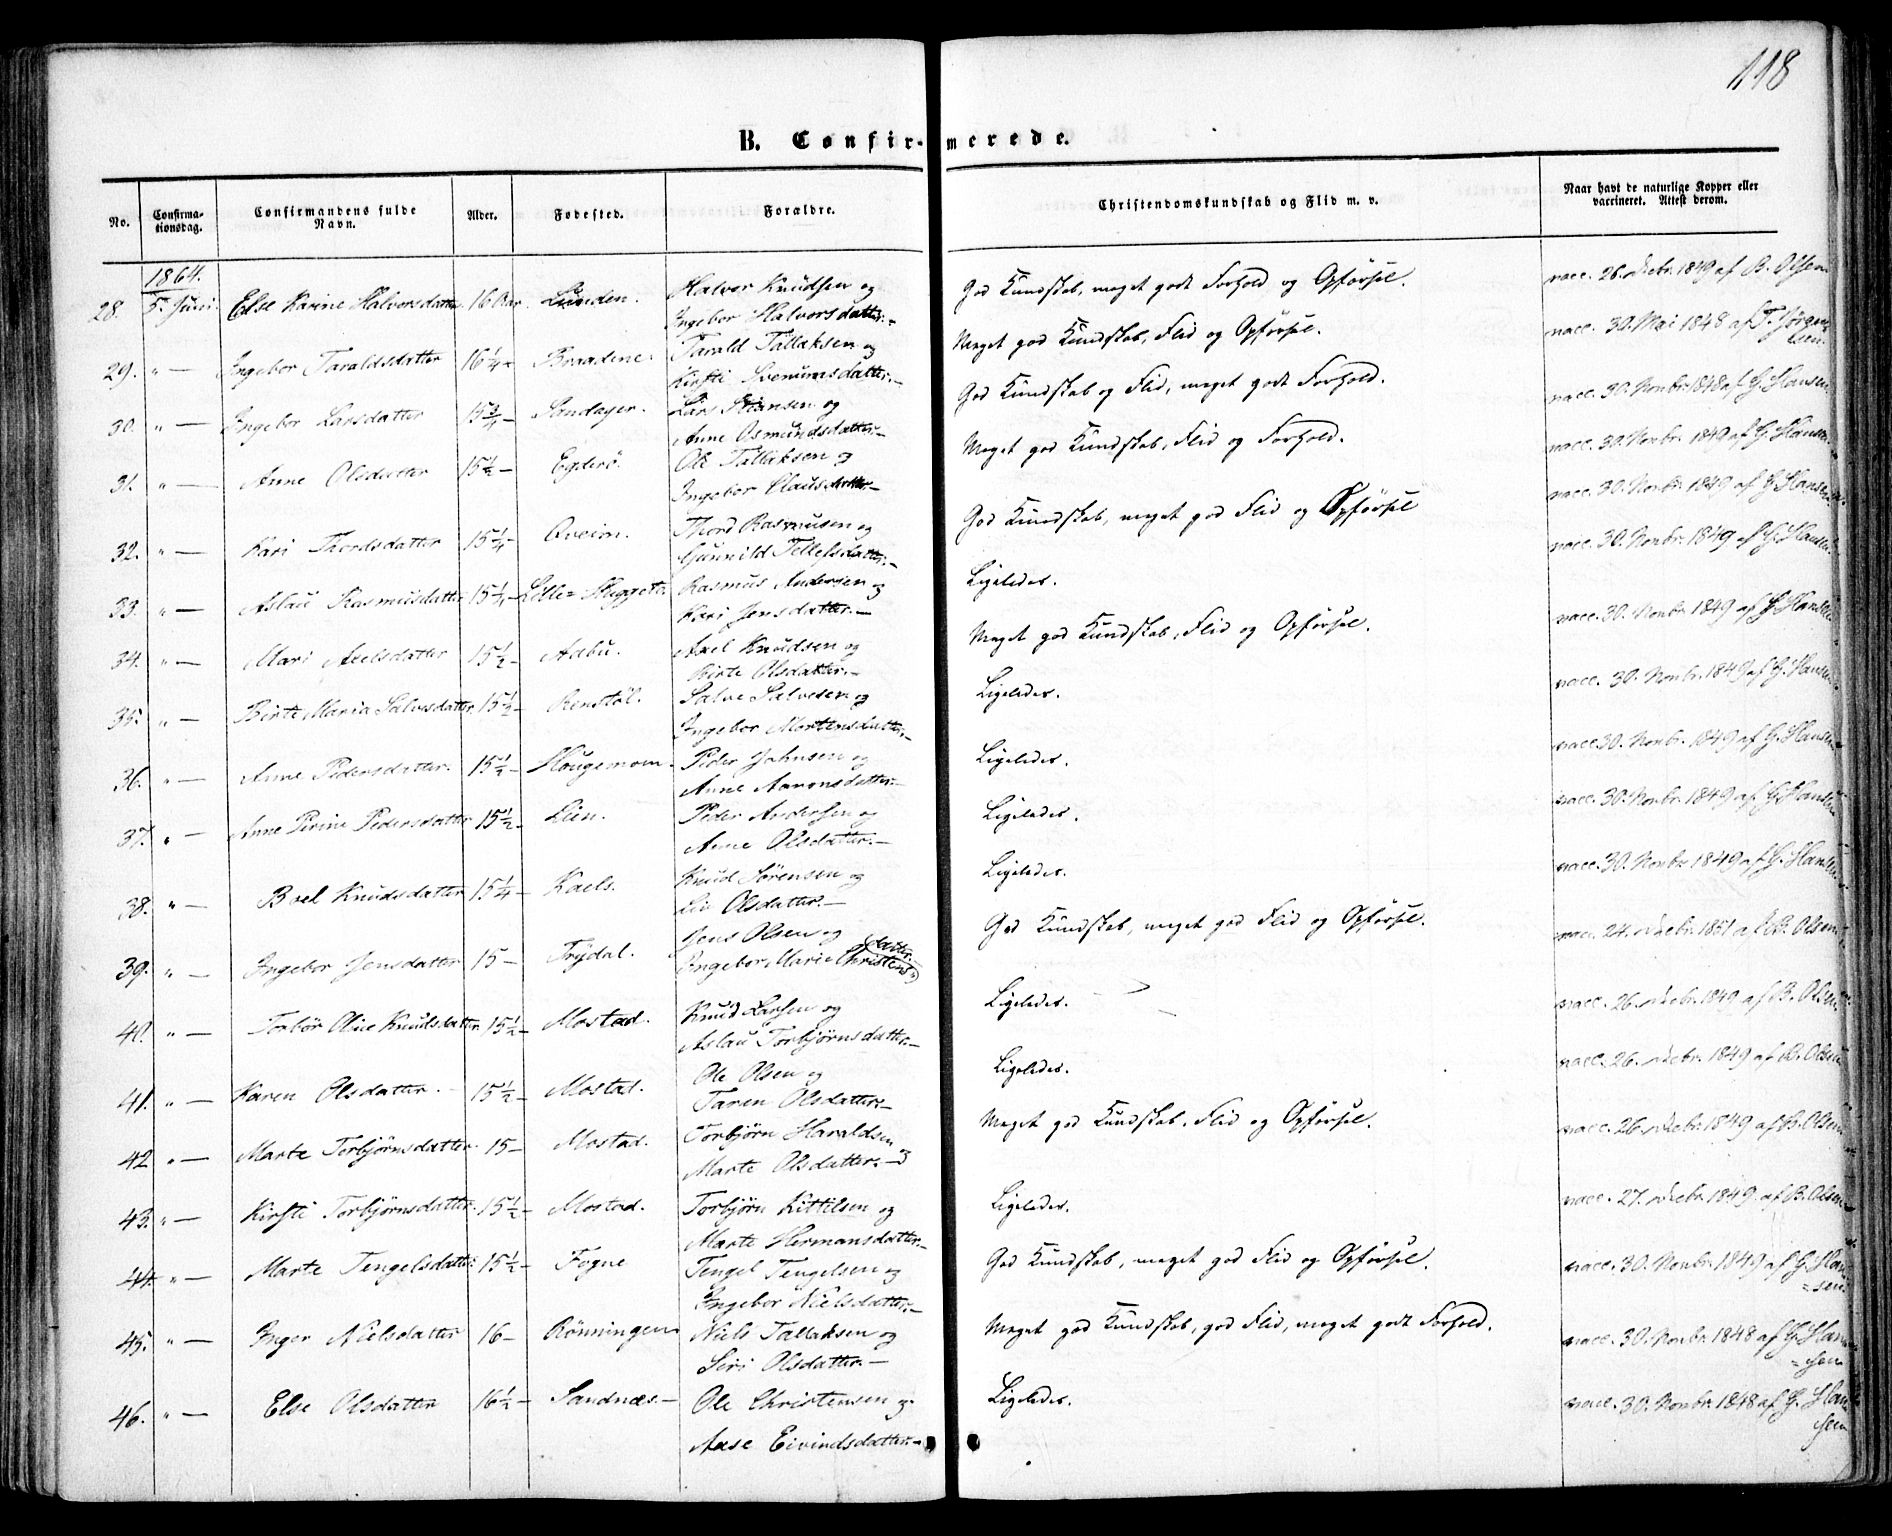 118
B. Confirmerede.
No. Confirmationsdag. Confirmandens fulde Navn. Alder. Fødested. Forældre. Christendomskundskab og Flid m. v. Naar havt de naturlige Kopper eller vaccineret. Attest derom.
1864.
28. 5. Juni Else Karine Halvorsdatter 16 Aar Lunden. Halvor Knudsen og Ingebor Halvorsdatter.- God Kundskab, meget godt Forhold og Opførsel. vacc. 26. Debr. 1849 af B. Olsen
29. " — Ingebor Taraldsdatter 16 1/4 - Braadene. Tarald Tallaksen og Kirsti Svenumsdatter.- Meget god Kundskab, Flid og Opførsel. vacc. 30. Mai 1848 af T. Jørgensen.
30. " — Ingebor Larsdatter 15 3/4 - Sandager. Lars Stiansen og Anne Osmundsdatter.- God Kundskab og Flid, meget godt Forhold. vacc. 30. Novbr. 1848 af G. Hansen.
31. " — Anne Olsdatter 15 1/2 - Egderø. Ole Tallaksen og Ingebor Clausdatter- Meget god Kundskab, Flid og Forhold. vacc. 30. Novbr. 1849 af G. Hansen
32. " — Kari Thordsdatter 15 1/4 - Qveim. Thord Rasmusen og Gunnild Tellefsdatter.- God Kundskab, meget god Flid og Opførsel vacc. 30. Novbr. 1849 af G. Hansen
33. " — Aslau Rasmusdatter 15 1/4 - Lille=Skyggeta Rasmus Andersen og Kari Jensdatter.- Ligeledes. vacc. 30. Novbr. 1849 af G. Hansen.
34. " — Mari Axelsdatter 15 1/2 - Asbu. Axel Knudsen og Birte Olsdatter.- Meget god Kundskab, Flid og Opførsel. vacc. 30. Novbr. 1849 af G. Hansen
35. " — Birte Maria Salvesdatter 15 1/2 - Renstøl. Salve Salvesen og Ingebor Mortensdatter.- Ligeledes. vacc. 30. Novbr. 1849 af G. Hansen
36. " — Anne Pedersdatter. 15 1/2 - Hougemoen. Peder Johnsen og Anne Aaronsdatter.- Ligeledes. vacc. 30. Novbr. 1849 af G. Hansen
37. " — Anne Perine Pedersdatter 15 1/2 - Lien. Peder Andersen og Anne Olsdatter.- Ligeledes. vacc. 30. Novbr. 1849 af G. Hansen
38. " — Boel Knudsdatter 15 1/4 - Kaels. Knud Sørensen og Liv Olsdatter.- Ligeledes. vacc. 30. Novbr 1849 af G. Hansen
39. " — Ingebor Jensdatter 15 - Trydal. Jens Olsen og Ingebor Marie Christensdatter God Kundskab, meget god Flid og Opførsel. vacc. 24. Debr. 1851 af B. Olsen
40. " — Torbør Oline Knudsdatter 15 1/2 - Mostad. Knud Larsen og Aslau Torbjørnsdatter.- Ligeledes. vacc. 26. Debr. 1849 af B. Olsen
41. " — Karen Olsdatter. 15 1/2 - Mostad. Ole Olsen og Taren Olsdatter.- Ligeledes. vacc. 26. Debr. 1849 af B. Olsen
42 " — Marte Torbjørnsdatter 15 - Mostad. Torbjørn Haraldsen og Marte Olsdatter.- Meget god Kundskab, Flid og Opførsel. vacc. 26. Debr. 1849 af B. Olsen
43. " — Kirsti Torbjørnsdatter. 15 1/2 - Mostad. Torbjørn Kittilsen og Marte Hermansdatter.- Ligeledes. vacc. 27. Debr. 1849. af B. Olsen
44. " — Marte Tengelsdatter 15 1/2 - Fogne Tengel Tengelsen og Ingebor Nielsdatter.- God Kundskab, meget god Flid og Opførsel. vacc. 30. Novbr. 1849 af G. Han=sen
45. " — Inger Nielsdatter 16 - Rønningen Niels Tallaksen og Siri Olsdatter.- Meget god Kundskab, god Flid, meget godt Forhold. vacc. 30. Novbr. 1848 af G. Han=sen
46. " — Else Olsdatter 16 1/2 - Sandnæs - Ole Christensen og Aase Eivindsdatter.- Ligeledes. vacc. 30. Novbr. 1848 af G. Hansen